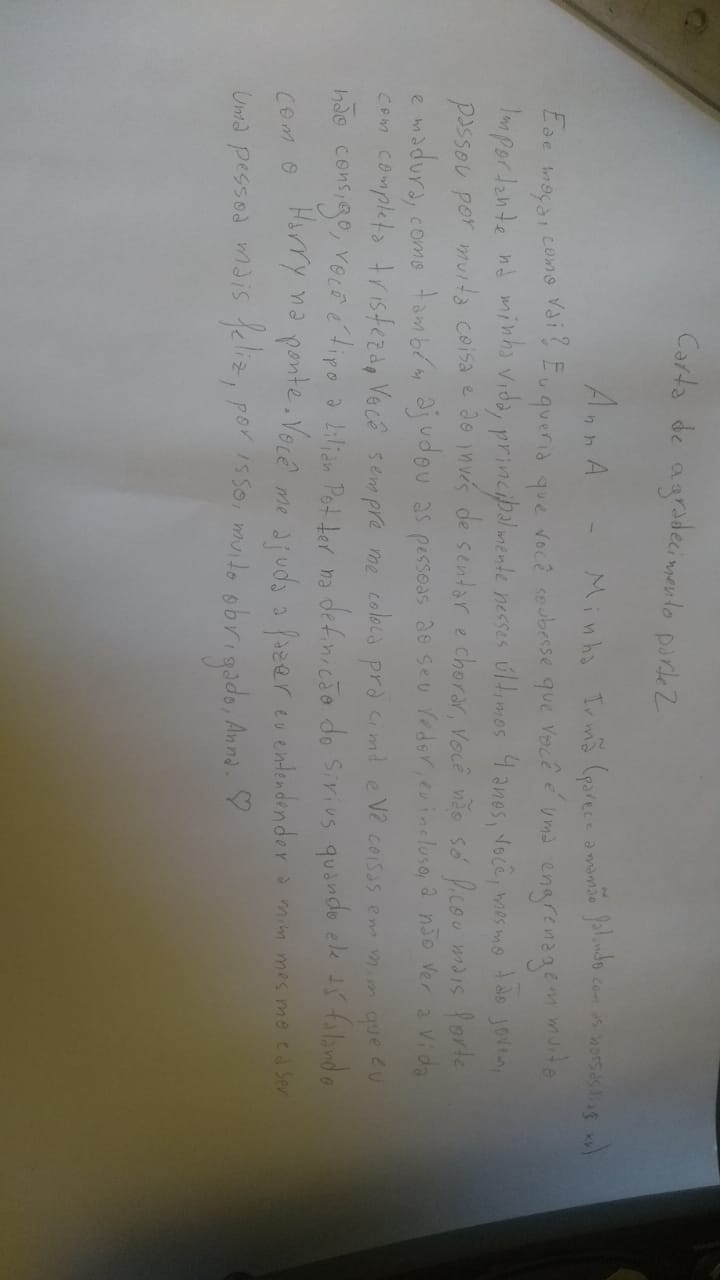 Carta de agradecimento parte 2
AnnA - Minha Irmã (parece a mamão falando com as nossas tias xv)
Eae moça, como vai? Eu queria que você soubesse que você é uma engrenagem muito
importante na minha vida, principalmente nesses últimos 4 anos, você, mesmo tão jovem,
passou por muita coisa e ao invés de sentar e chorar, você não só ficou mais forte
e madura, como também ajudou as pessoas ao seu redor, eu incluso, a não ver a vida
com completa tristeza, Você sempre me coloca pra cima e vê coisas em mim que eu
não consigo, você é tipo a Lilian Potter na definição do Sirius quando ele tá falando
com o Harry na ponte. Você me ajuda a fazer eu entendender a mim mesmo e a ser
uma pessoa mais feliz, por isso, muito obrigado, Anna. ♡